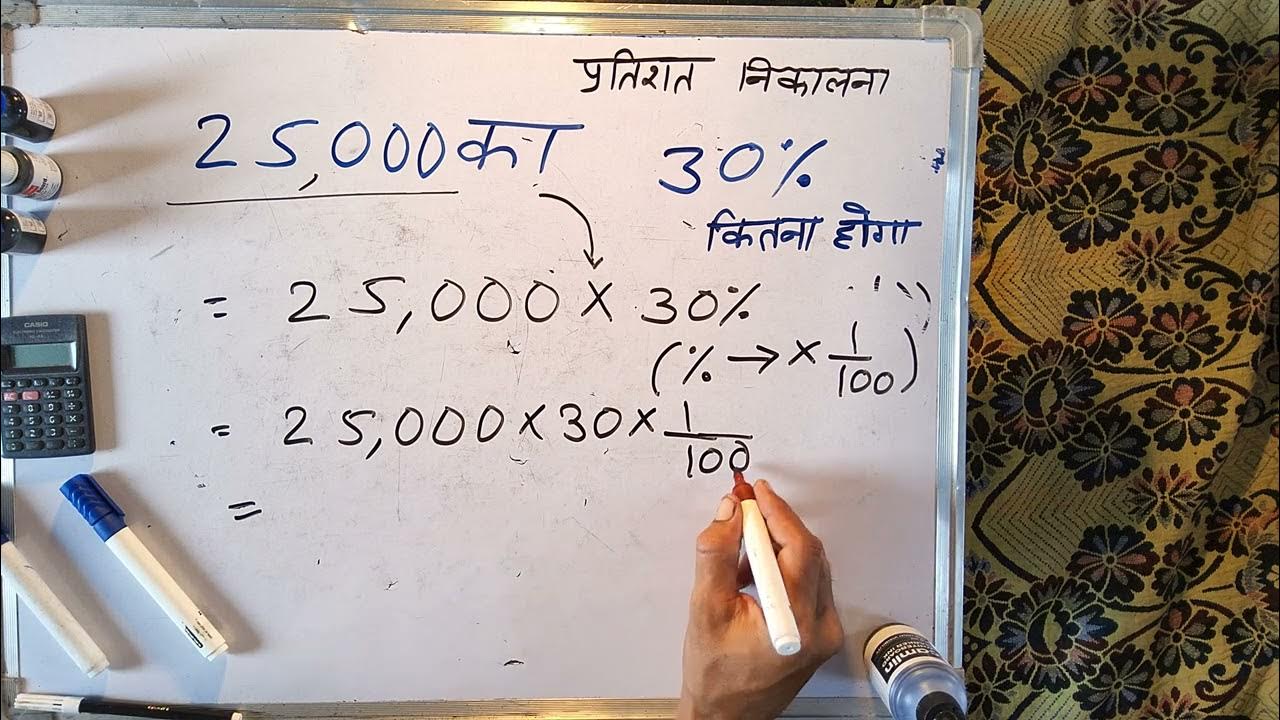 प्रतिशत निकालना
25,000 का 30%
कितना होगा
= 25,000 × 30%
(% → × 1/100)
= 25,000 × 30 × 1/100
=
CASIO